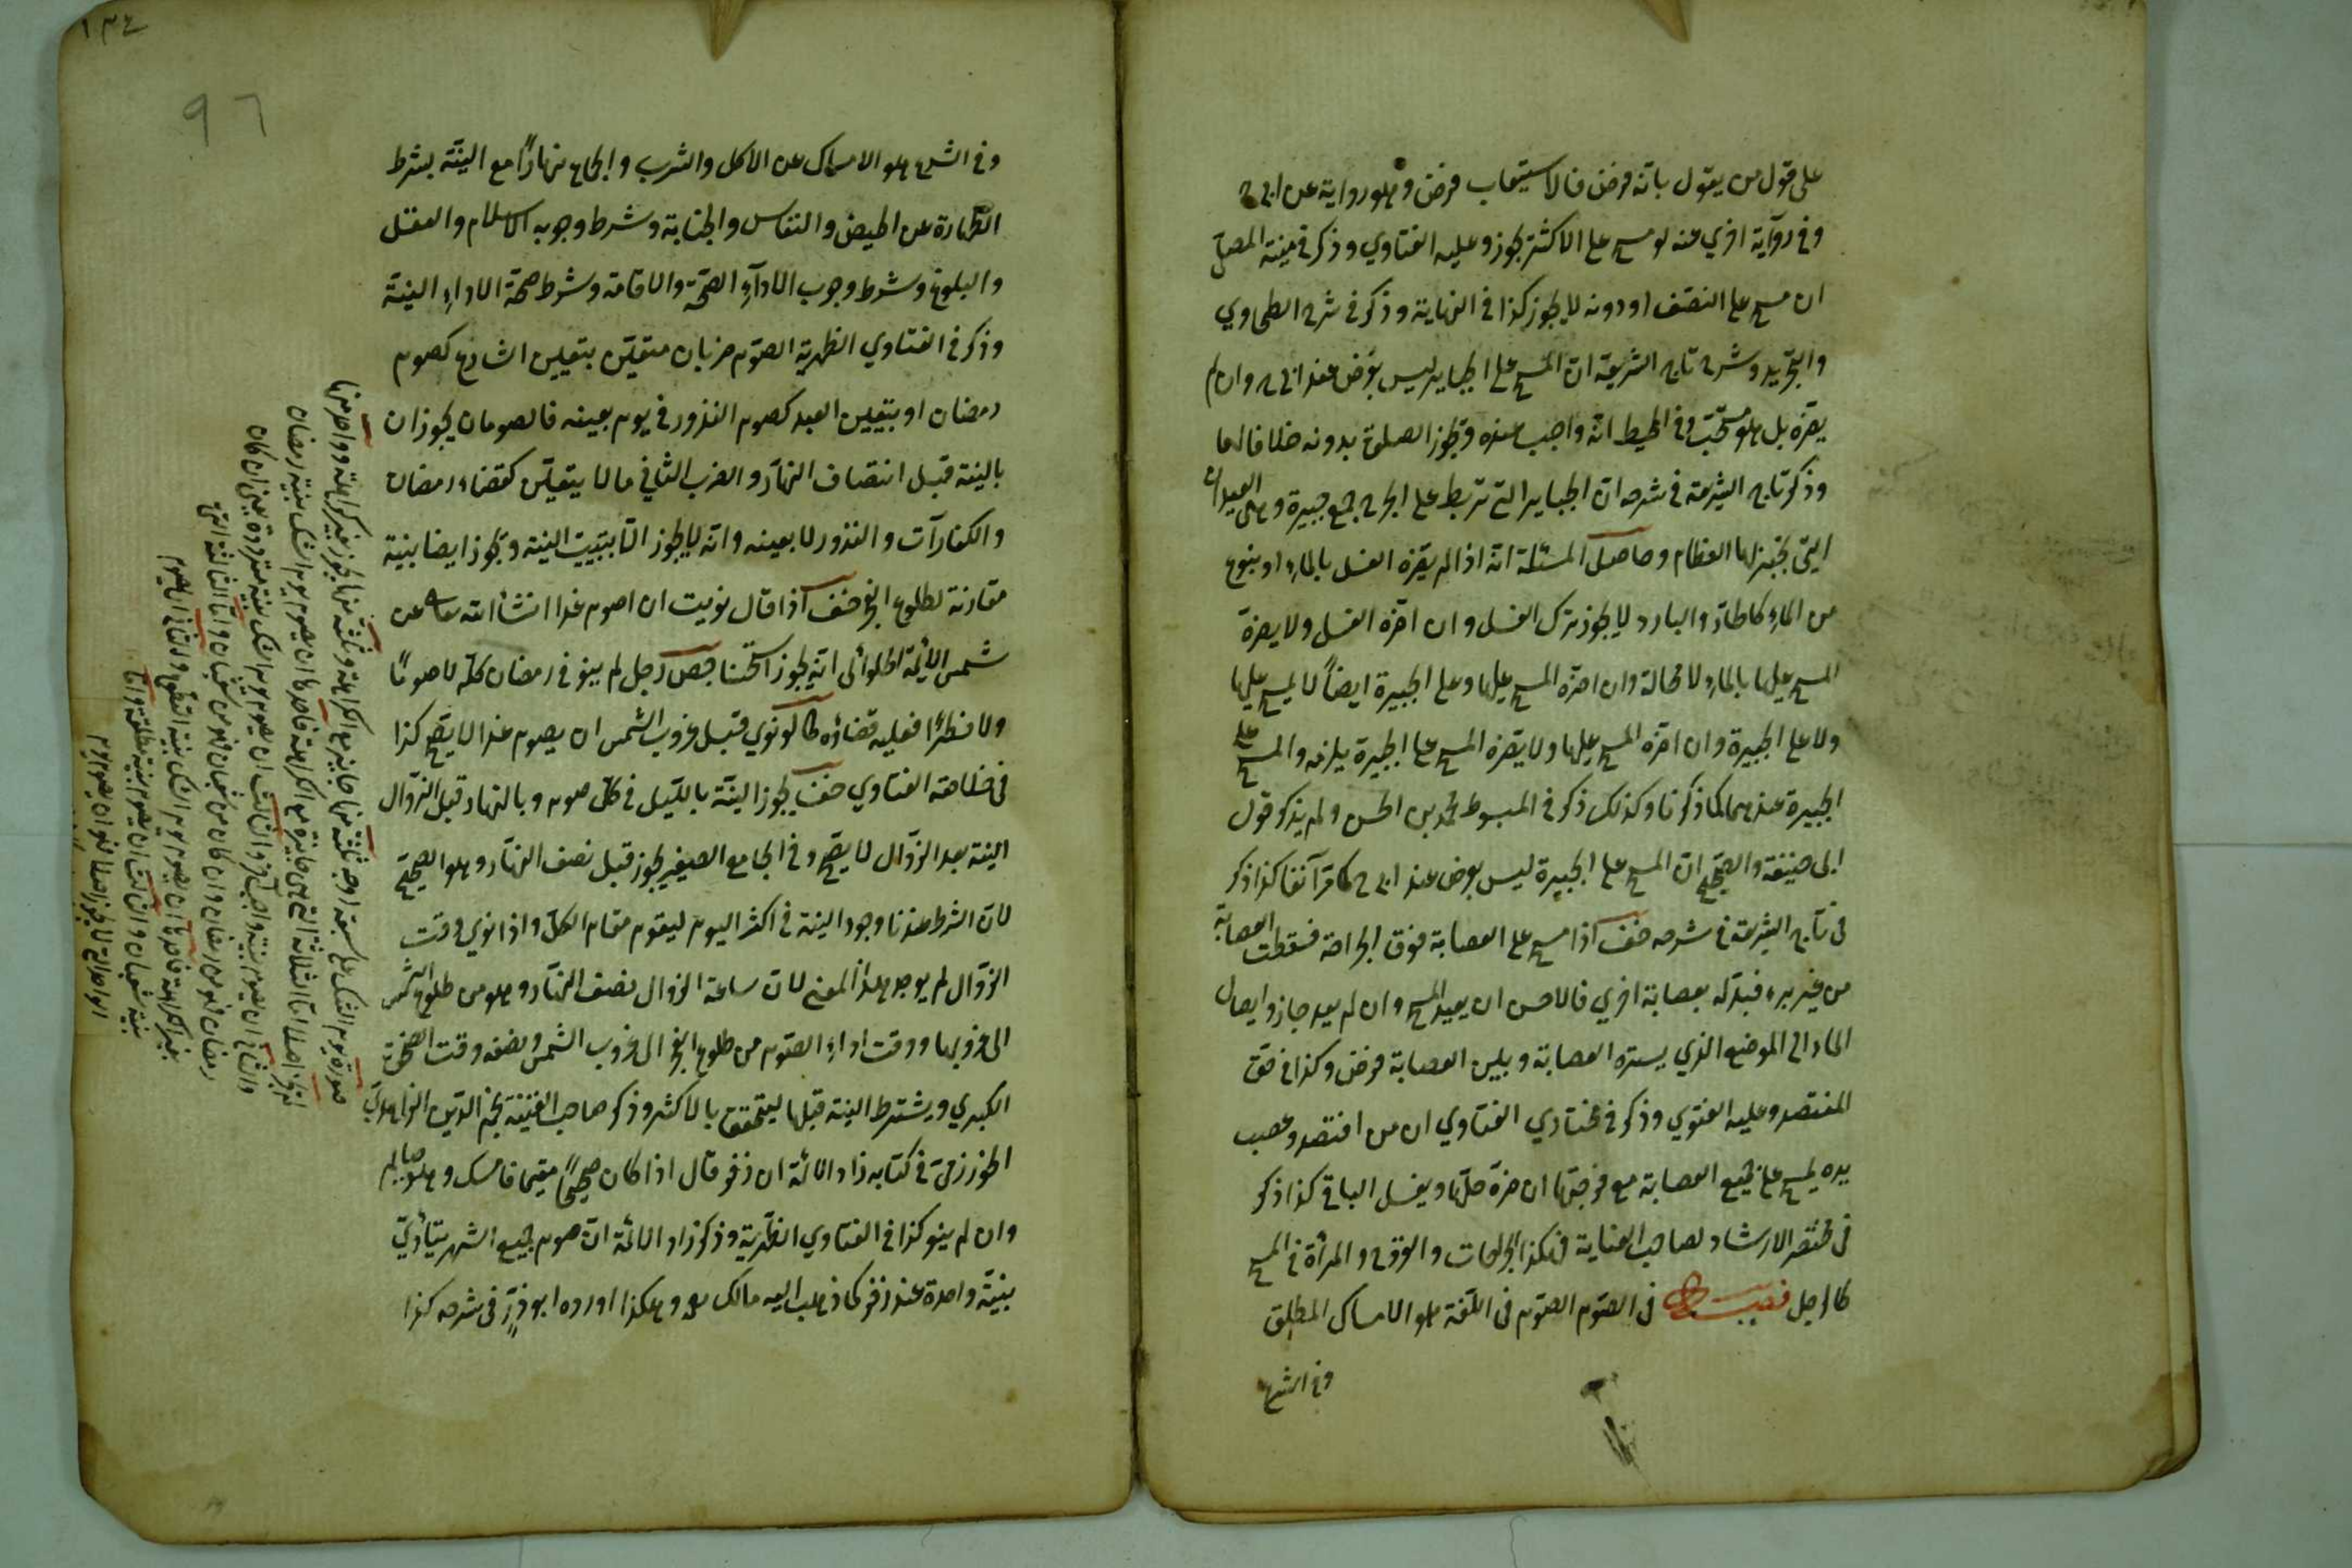 على قول من يقول بانه فرض فالاستيعاب فرض وهو رواية عن ابى ح
وفى رواية اخرى عنه لو مسح على الاكثر يجوز وعليه الفتاوي وذكر فى منية المصلى
ان مسح على النصف او دونه لا يجوز كذا فى النهاية وذكر فى شرح الطحاوي
والتجريد وشرح تاج الشريعة ان المسح على الجباير ليس بفرض عند ابى ح وان لم
يضره بل هو مستحب وفى المحيط انه واجب عنده وتجوز الصلوة بدونه خلافا لهما
وذكر تاج الشريعة فى شرحه ان الجباير التى تربط على الجرح جمع جبيرة وهى العيدان
التى تجبر بها العظام وحاصل المسئلة انه اذا لم يضره الغسل بالماء او بنوع
من الماء كالحار والبارد لا يجوز ترك الغسل وان اضره الغسل ولا يضره
المسح عليها بالماء لا محالة وان اضره المسح عليها وعلى الجبيرة ايضاً لا يمسح عليها
ولا على الجبيرة وان اضره المسح عليها ولا يضره المسح على الجبيرة يلزمه والمسح على
الجبيرة عندهما كما ذكرنا وكذلك ذكر فى المبسوط محمد بن الحسن ولم يذكر قول
ابى حنيفة والصحيح ان المسح على الجبيرة ليس بفرض عند ابى ح كما مر آنفا كذا ذكر
فى تاج الشريعة فى شرحه اذا مسح على العصابة فوق الجراحة فسقطت العصابة
من غير برء فبدله بعصابة اخرى فالاحسن ان يعيد المسح وان لم يعد جاز وايصال
الماء الى الموضع الذي يستره العصابة وبين العصابة فرض وكذا فى حق
المفتصد وعليه الفتوي وذكر فى مختار الفتاوي ان من افتصد وعصب
يده يمسح على جميع العصابة مع فرجتها ان ضره حلها ويغسل الباقى كذا ذكر
فى مختصر الارشاد لصاحب العناية فهكذا الجراحات والقروح والمرأة فى المسح
كالرجل فصل فى الصوم الصوم فى اللغة هو الامساك المطلق
وفى الشرع
١٣٤
96
وفى الشرع هو الامساك عن الاكل والشرب والجماع نهاراً مع النية بشرط
الطهارة عن الحيض والنفاس والجنابة وشرط وجوبه الاسلام والعقل
والبلوغ وشرط وجوب الادآء الصحة والاقامة وشرط صحة الاداء النية
وذكر فى الفتاوي الظهيرية الصوم ضربان متعين بتعيين الشارع كصوم
رمضان او بتعيين العبد كصوم النذور فى يوم بعينه فالصومان يجوزان
بالنية قبل انتصاف النهار والضرب الثانى ما لا يتعين كقضاء رمضان
والكفارآت والنذور لا بعينه وانه لا يجوز الا بتبييت النية وتجوز ايضا بنية
مقارنة لطلوع الفجر اذا قال نويت ان اصوم غدا انشأ الله تعالى عن
شمس الائمة الحلوائى انه يجوز استحسنا رجل لم ينو فى رمضان كله لا صوماً
ولا فطرا فعليه قضاؤه كما لو نوي قبل غروب الشمس ان يصوم غدا لا يصح كذا
فى خلاصة الفتاوي يجوز النية بالليل فى كل صوم وبالنهار قبل الزوال
النية بعد الزوال لا يصح وفى الجامع الصغير يجوز قبل نصف النهار وهو الصحيح
لان الشرط عندنا وجود النية فى اكثر اليوم ليقوم مقام الكل واذا نوي وقت
الزوال لم يوجد هذا المعنى لان ساعة الزوال نصف النهار وهو من طلوع الشمس
الى غروبها ووقت اداء الصوم من طلوع الفجر الى غروب الشمس ونصفه وقت الضحوة
الكبري ويشترط النية قبلها ليتحقق بالاكثر وذكر صاحب القنية نجم الدين الزاهدي
الخوارزمى فى كتابه زاد الائمة ان زفر قال اذا كان صحيحاً مقيما فامسك وهو صايم
وان لم ينو كذا فى الفتاوي الظهيرية وذكر زاد الائمة ان صوم جميع الشهر يتأدي
بنية واحدة عند زفر كما ذهب اليه مالك وهكذا اورده ابو ذر فى شرحه كذا
صورة يوم الشك على سبعة اوجه ثلثة منها جايز مع الكراهة وثلثة منها يجوز بغير كراهة وواحد منها
لم يجز اصلا اما الثلاثة التى هى جايزة مع الكراهة فاحدها ان يصوم يوم الشك بنية رمضان
والثانى ان يصوم بنية واجب آخر والثالث ان يصوم يوم الشك بنية مترددة يعنى ان كان
رمضان فهو من رمضان وان كان من شعبان فهو من شعبان واما الثلاثة التى
بغير الكراهة فاحدها ان يصوم يوم الشك بنية التطوع والثانى ان يصوم
بنية شعبان والثالث ان يصوم بنية مطلقة واما
الواحد التى لا يجوز اصلا فهو ان يصوم يوم